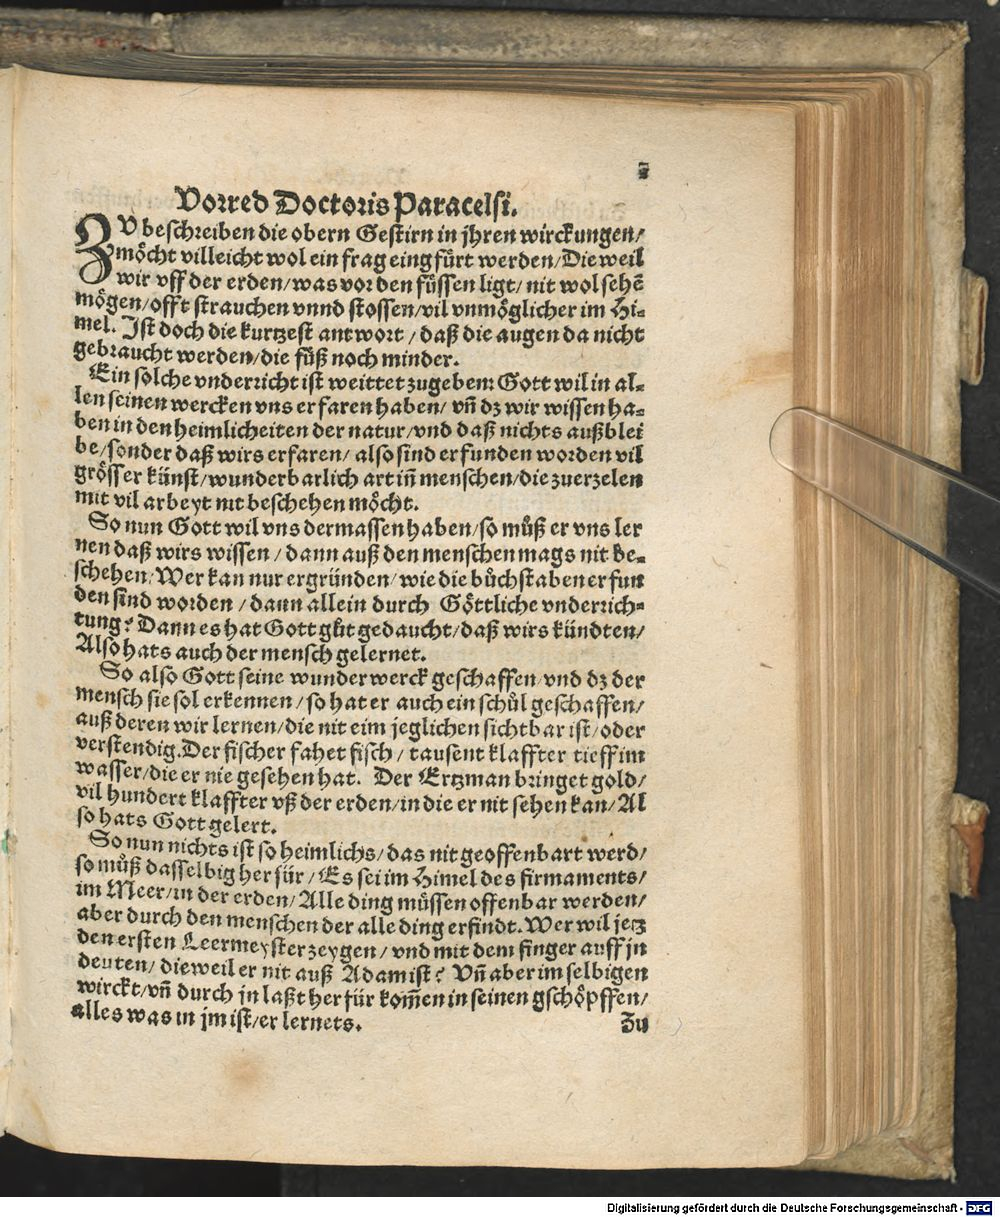 Vorred Doctoris Paracelsi.
ZV beschreiben die obern Gestirn in jhren wirckungen/
möcht villeicht wol ein frag eingfürt werden/Die weil
wir vff der erden/was vor den füssen ligt/ nit wol sehē
mögen/offt strauchen vnnd stossen/vil vnmöglicher im Hi⸗
mel. Ist doch die kurtzest antwort / daß die augen da nicht
gebraucht werden/die füß noch minder.
Ein solche vnderricht ist weittet zugeben: Gott wil in al⸗
len seinen wercken vns erfaren haben/ vñ dz wir wissen ha⸗
ben in den heimlicheiten der natur/vnd daß nichts außblei
be/sonder daß wirs erfaren/ also sind erfunden worden vil
grösser künst/wunderbarlich art iñ menschen/die zuerzelen
mit vil arbeyt nit beschehen möcht.
So nun Gott wil vns dermassen haben/so můß er vns ler
nen daß wirs wissen / dann auß den menschen mags nit be⸗
schehen/Wer kan nur ergründen/wie die bůchstaben erfun
den sind worden / dann allein durch Göttliche vnderrich⸗
tung? Dann es hat Gott gůt gedaucht/daß wirs kündten/
Also hats auch der mensch gelernet.
So also Gott seine wunderwerck geschaffen/vnd dz der
mensch sie sol erkennen/so hat er auch ein schůl geschaffen/
auß deren wir lernen/die nit eim jeglichen sichtbar ist/oder
verstendig.Der fischer fahet fisch / tausent klaffter tieff im
wasser/die er nie gesehen hat. Der Ertzman bringet gold/
vil hundert klaffter vß der erden/in die er nit sehen kan/Al
so hats Gott gelert.
So nun nichts ist so heimlichs/das nit geoffenbart werd/
so můß dasselbig herfür / Es sei im Himel des firmaments/
im Meer/in der erden/Alle ding müssen offenbar werden/
aber durch den menschen der alle ding erfindt.Wer wil jetz
den ersten Leermeyster zeygen/vnd mit dem finger auff jn
deuten/ dieweil er nit auß Adam ist? Vñ aber im selbigen
wirckt/vñ durch jn laßt herfür kom̄en in seinen gschöpffen/
alles was in jm ist/er lernets.
Zu
Digitalisierung gefördert durch die Deutsche Forschungsgemeinschaft - DFG